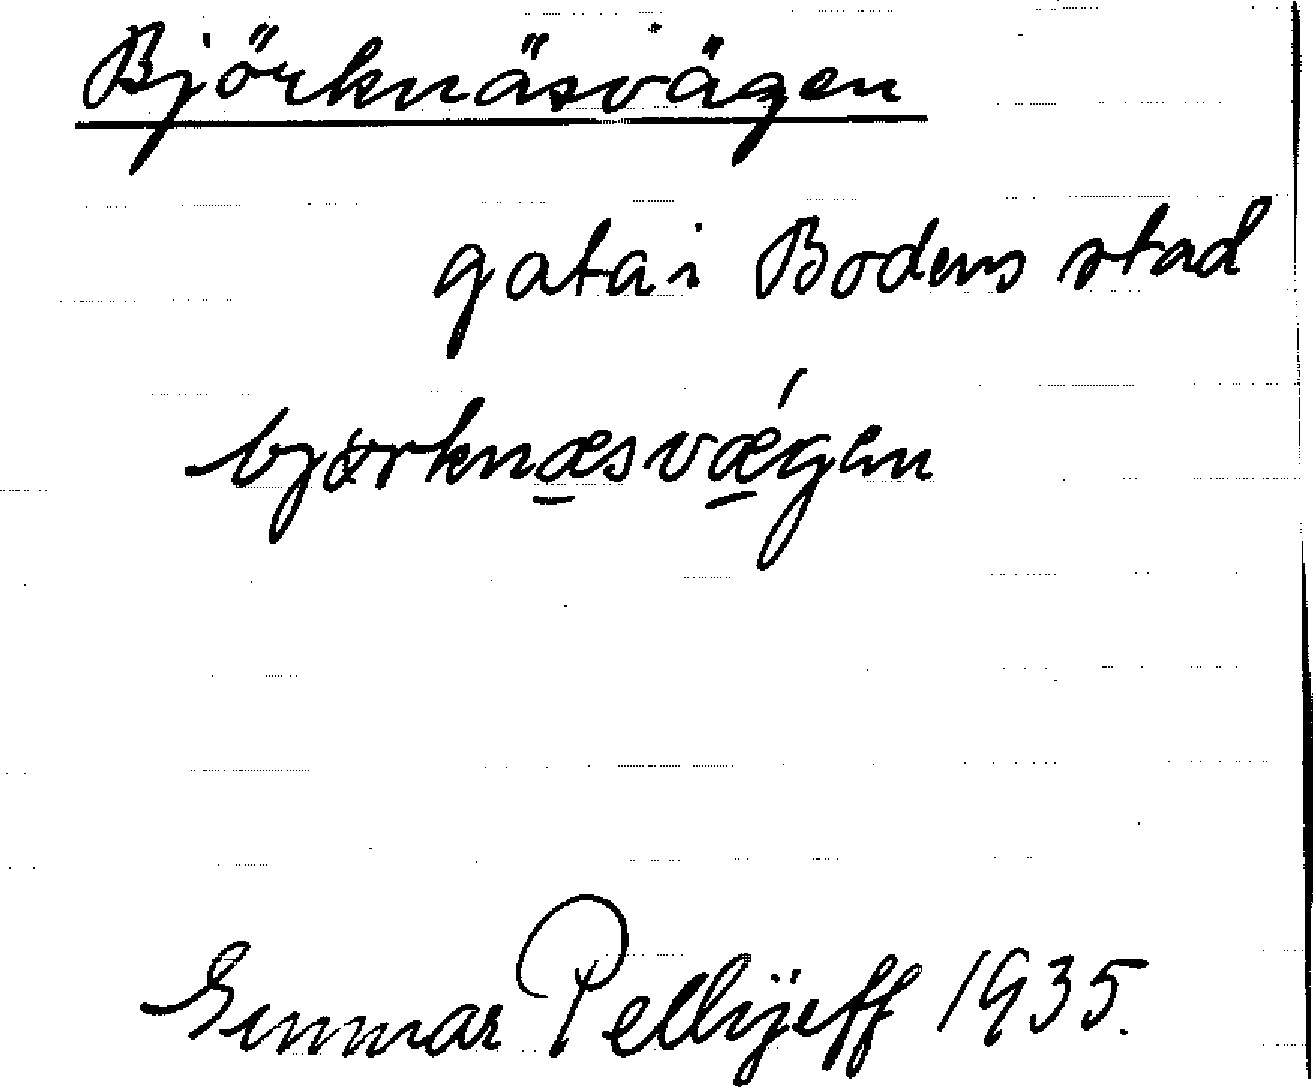 Björknäsvägen
gata i Bodens stad
bjørknæsvǽgen
Gunnar Pellijeff 1935.